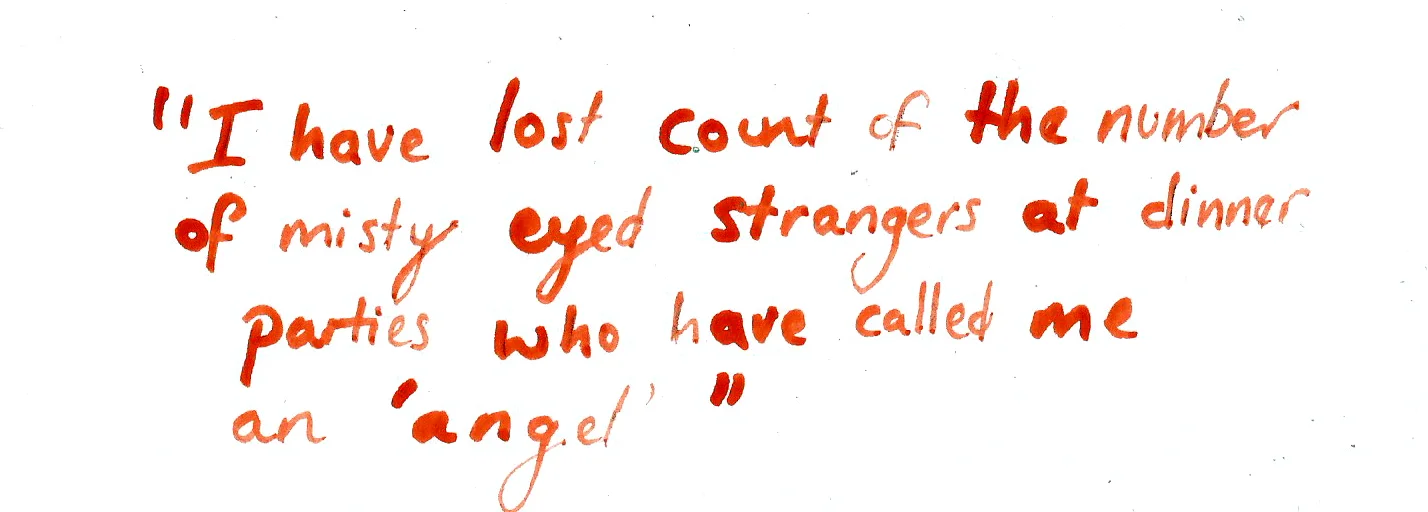 "I have lost count of the number
of misty eyed strangers at dinner
parties who have called me
an 'angel' "